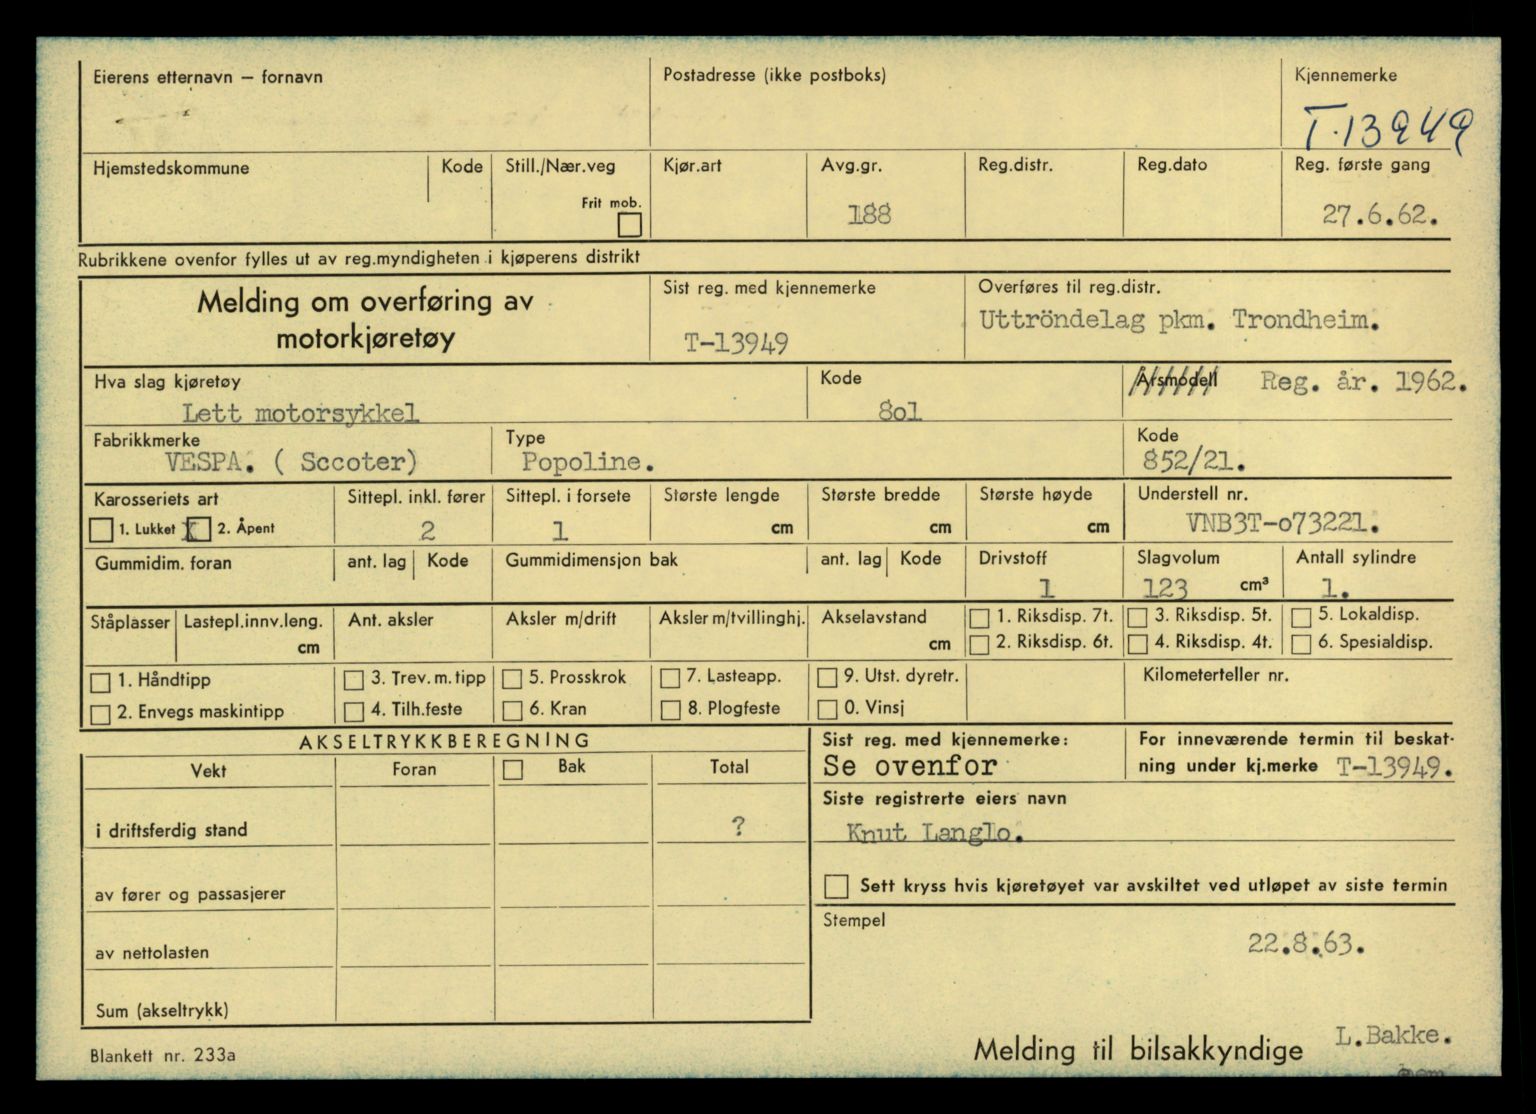 Eierens etternavn – fornavn
Postadresse (ikke postboks)
Kjennemerke
T-13949
Hjemstedskommune
Kode
Still./Nær.veg
Frit mob.
Kjør.art
Avg.gr.
188
Reg.distr.
Reg.dato
Reg. første gang
27.6.62.
Rubrikkene ovenfor fylles ut av reg.myndigheten i kjøperens distrikt
Melding om overføring av
motorkjøretøy
Sist reg. med kjennemerke
T-13949
Overføres til reg.distr.
Uttröndelag pkm. Trondheim.
Hva slag kjøretøy
Lett motorsykkel
Kode
8o1
Årsmodell Reg. år. 1962.
Fabrikkmerke
VESPA. ( Sccoter)
Type
Popoline.
Kode
852/21.
Karosseriets art
1. Lukket X 2. Åpent
Sittepl. inkl. fører
2
Sittepl. i forsete
1
Største lengde
cm
Største bredde
cm
Største høyde
cm
Understell nr.
VNB3T-o73221.
Gummidim. foran
ant. lag Kode
Gummidimensjon bak
ant. lag Kode
Drivstoff
1
Slagvolum
123 cm³
Antall sylindre
1.
Ståplasser
Lastepl.innv.leng.
cm
Ant. aksler
Aksler m/drift
Aksler m/tvillinghj.
Akselavstand
cm
1. Riksdisp. 7t.
2. Riksdisp. 6t.
3. Riksdisp. 5t.
4. Riksdisp. 4t.
5. Lokaldisp.
6. Spesialdisp.
1. Håndtipp
2. Envegs maskintipp
3. Trev. m. tipp
4. Tilh.feste
5. Prosskrok
6. Kran
7. Lasteapp.
8. Plogfeste
9. Utst. dyretr.
0. Vinsj
Kilometerteller nr.
AKSELTRYKKBEREGNING
Vekt
Foran
Bak
Total
i driftsferdig stand
?
av fører og passasjerer
av nettolasten
Sum (akseltrykk)
Sist reg. med kjennemerke:
Se ovenfor
For inneværende termin til beskat-
ning under kj.merke T-13949.
Siste registrerte eiers navn
Knut Langlo.
Sett kryss hvis kjøretøyet var avskiltet ved utløpet av siste termin
Stempel
22.8.63.
Blankett nr. 233a
Melding til bilsakkyndige
L.Bakke.